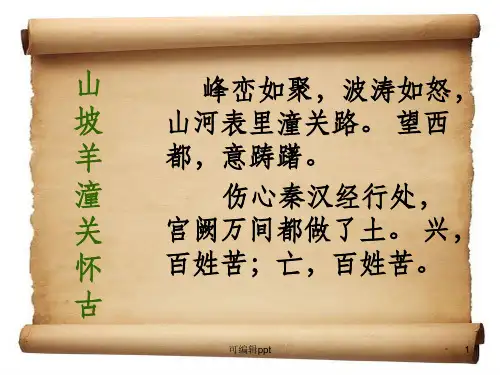 山坡羊潼关怀古
峰峦如聚，波涛如怒，
山河表里潼关路。 望西
都，意踌躇。
伤心秦汉经行处，
宫阙万间都做了土。 兴，
百姓苦；亡，百姓苦。
可编辑ppt
1